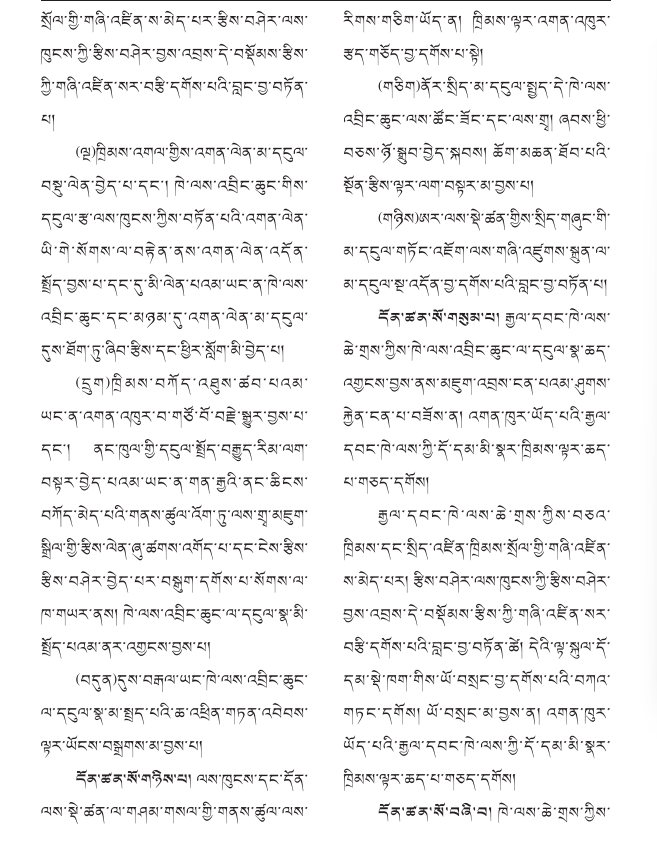 སྲོལ་གྱི་གཞི་འཛིན་ས་མེད་པར་རྩིས་བཤེར་ལས་
ཁུངས་ཀྱི་རྩིས་བཤེར་བྱས་འབྲས་དེ་བསྡོམས་རྩིས་
ཀྱི་གཞི་འཛིན་སར་བརྩི་དགོས་པའི་བླང་བྱ་བཏོན་
པ།
(ལྔ)ཁྲིམས་འགལ་གྱིས་འགན་ལེན་མ་དངུལ་
བསྡུ་ལེན་བྱེད་པ་དང་། ཁེ་ལས་འབྲིང་ཆུང་གིས་
དངུལ་རྩ་ལས་ཁུངས་ཀྱིས་བཏོན་པའི་འགན་ལེན་
ཡི་གེ་སོགས་ལ་བརྟེན་ནས་འགན་ལེན་འདོན་
སྤྲོད་བྱས་པ་དང་དུ་མི་ལེན་པའམ་ཡང་ན་ཁེ་ལས་
འབྲིང་ཆུང་དང་མཉམ་དུ་འགན་ལེན་མ་དངུལ་
དུས་ཐོག་ཏུ་ཞིབ་རྩིས་དང་ཕྱིར་སློག་མི་བྱེད་པ།
(དྲུག)ཁྲིམས་བཀོད་འཐུས་ཚབ་པའམ་
ཡང་ན་འགན་འཁུར་བ་གཙོ་བོ་བརྗེ་སྒྱུར་བྱས་པ་
དང་། ནང་ཁུལ་གྱི་དངུལ་སྤྲོད་བརྒྱུད་རིམ་ལག་
བསྟར་བྱེད་པའམ་ཡང་ན་གན་རྒྱའི་ནང་ཆིངས་
བཀོད་མེད་པའི་གནས་ཚུལ་འོག་ཏུ་ལས་གྲྭ་མཇུག་
སྒྲིལ་གྱི་རྩིས་ལེན་ཞུ་ཚགས་འགོད་པ་དང་ངེས་རྩིས་
རྩིས་བཤེར་བྱེད་པར་བསྒུག་དགོས་པ་སོགས་ལ་
ཁ་གཡར་ནས། ཁེ་ལས་འབྲིང་ཆུང་ལ་དངུལ་སྣ་མི་
སྤྲོད་པའམ་ནར་འགྱངས་བྱས་པ།
(བདུན)དུས་བརྒལ་ཡང་ཁེ་ལས་འབྲིང་ཆུང་
ལ་དངུལ་སྣ་མ་སྤྲད་པའི་ཆ་འཕྲིན་གཏན་འབེབས་
ལྟར་ཡོངས་བསྒྲགས་མ་བྱས་པ།
དོན་ཚན་སོ་གཉིས་པ། ལས་ཁུངས་དང་དོན་
ལས་སྡེ་ཚན་ལ་གཤམ་གསལ་གྱི་གནས་ཚུལ་ལས་
རིགས་གཅིག་ཡོད་ན། ཁྲིམས་ལྟར་འགན་འཁུར་
རྩད་གཅོད་བྱ་དགོས་པ་སྟེ།
(གཅིག)ནོར་སྲིད་མ་དངུལ་སྤྱད་དེ་ཁེ་ལས་
འབྲིང་ཆུང་ལས་ཚོང་ཟོང་དང་ལས་གྲྭ། ཞབས་ཕྱི་
བཅས་ཉོ་སྒྲུབ་བྱེད་སྐབས། ཆོག་མཆན་ཐོབ་པའི་
སྔོན་རྩིས་ལྟར་ལག་བསྟར་མ་བྱས་པ།
(གཉིས)ཨར་ལས་སྡེ་ཚན་གྱིས་སྲིད་གཞུང་གི་
མ་དངུལ་གཏོང་འཇོག་ལས་གཞི་འཛུགས་སྐྲུན་ལ་
མ་དངུལ་སྔ་འདོན་བྱ་དགོས་པའི་བླང་བྱ་བཏོན་པ།
དོན་ཚན་སོ་གསུམ་པ། རྒྱལ་དབང་ཁེ་ལས་
ཆེ་གྲས་ཀྱིས་ཁེ་ལས་འབྲིང་ཆུང་ལ་དངུལ་སྣ་ཆད་
འགྱངས་བྱས་ནས་མཇུག་འབྲས་ངན་པའམ་ཤུགས་
རྐྱེན་ངན་པ་བཟོས་ན། འགན་ཁུར་ཡོད་པའི་རྒྱལ་
དབང་ཁེ་ལས་ཀྱི་དོ་དམ་མི་སྣར་ཁྲིམས་ལྟར་ཆད་
པ་གཅད་དགོས།
རྒྱལ་དབང་ཁེ་ལས་ཆེ་གྲས་ཀྱིས་བཅའ་
ཁྲིམས་དང་སྲིད་འཛིན་ཁྲིམས་སྲོལ་གྱི་གཞི་འཛིན་
ས་མེད་པར། རྩིས་བཤེར་ལས་ཁུངས་ཀྱི་རྩིས་བཤེར་
བྱས་འབྲས་དེ་བསྡོམས་རྩིས་ཀྱི་གཞི་འཛིན་སར་
བརྩི་དགོས་པའི་བླང་བྱ་བཏོན་ཚེ། དེའི་ལྟ་སྐུལ་དོ་
དམ་སྡེ་ཁག་གིས་ཡོ་བསྲང་བྱ་དགོས་པའི་བཀའ་
གཏང་དགོས། ཡོ་བསྲང་མ་བྱས་ན། འགན་ཁུར་
ཡོད་པའི་རྒྱལ་དབང་ཁེ་ལས་ཀྱི་དོ་དམ་མི་སྣར་
ཁྲིམས་ལྟར་ཆད་པ་གཅད་དགོས།
དོན་ཚན་སོ་བཞི་བ། ཁེ་ལས་ཆེ་གྲས་ཀྱིས་